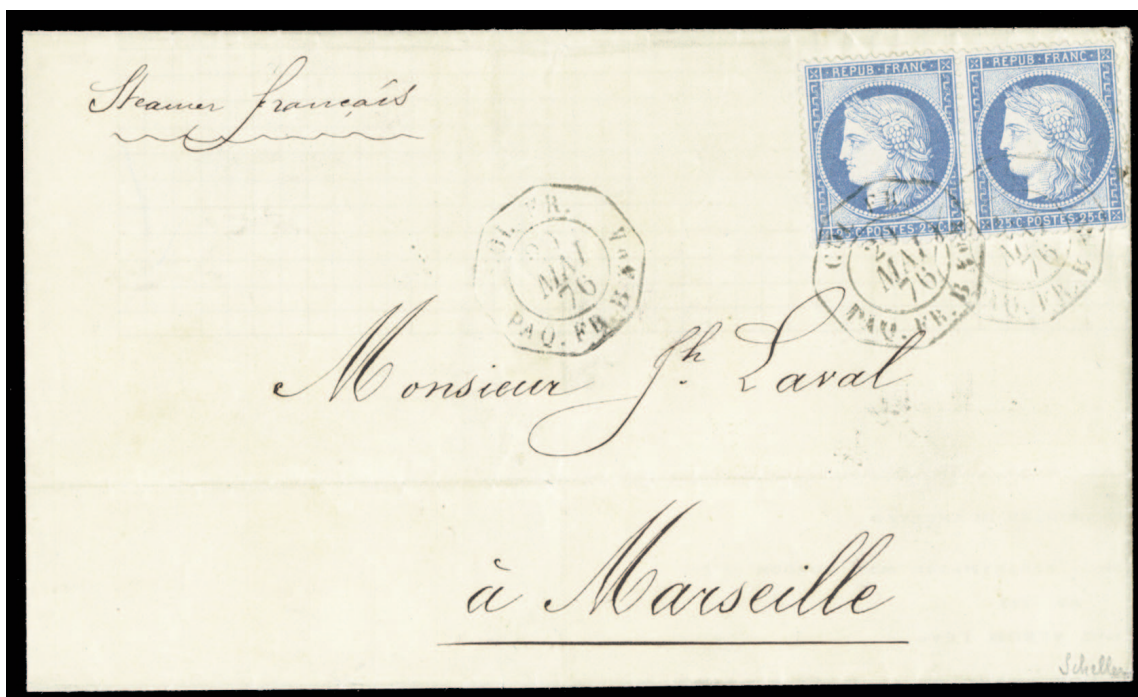 Steamer français
REPUB·FRANC·
25 C·POSTES·25 C
REPUB·FRANC·
25 C·POSTES·25 C
COL. FR.
MAI
76
PAQ. FR. B
FR.
MAI
76
PAQ. FR. B
MAI
76
FR. B
Monsieur Jh. Laval
à Marseille
Scheller